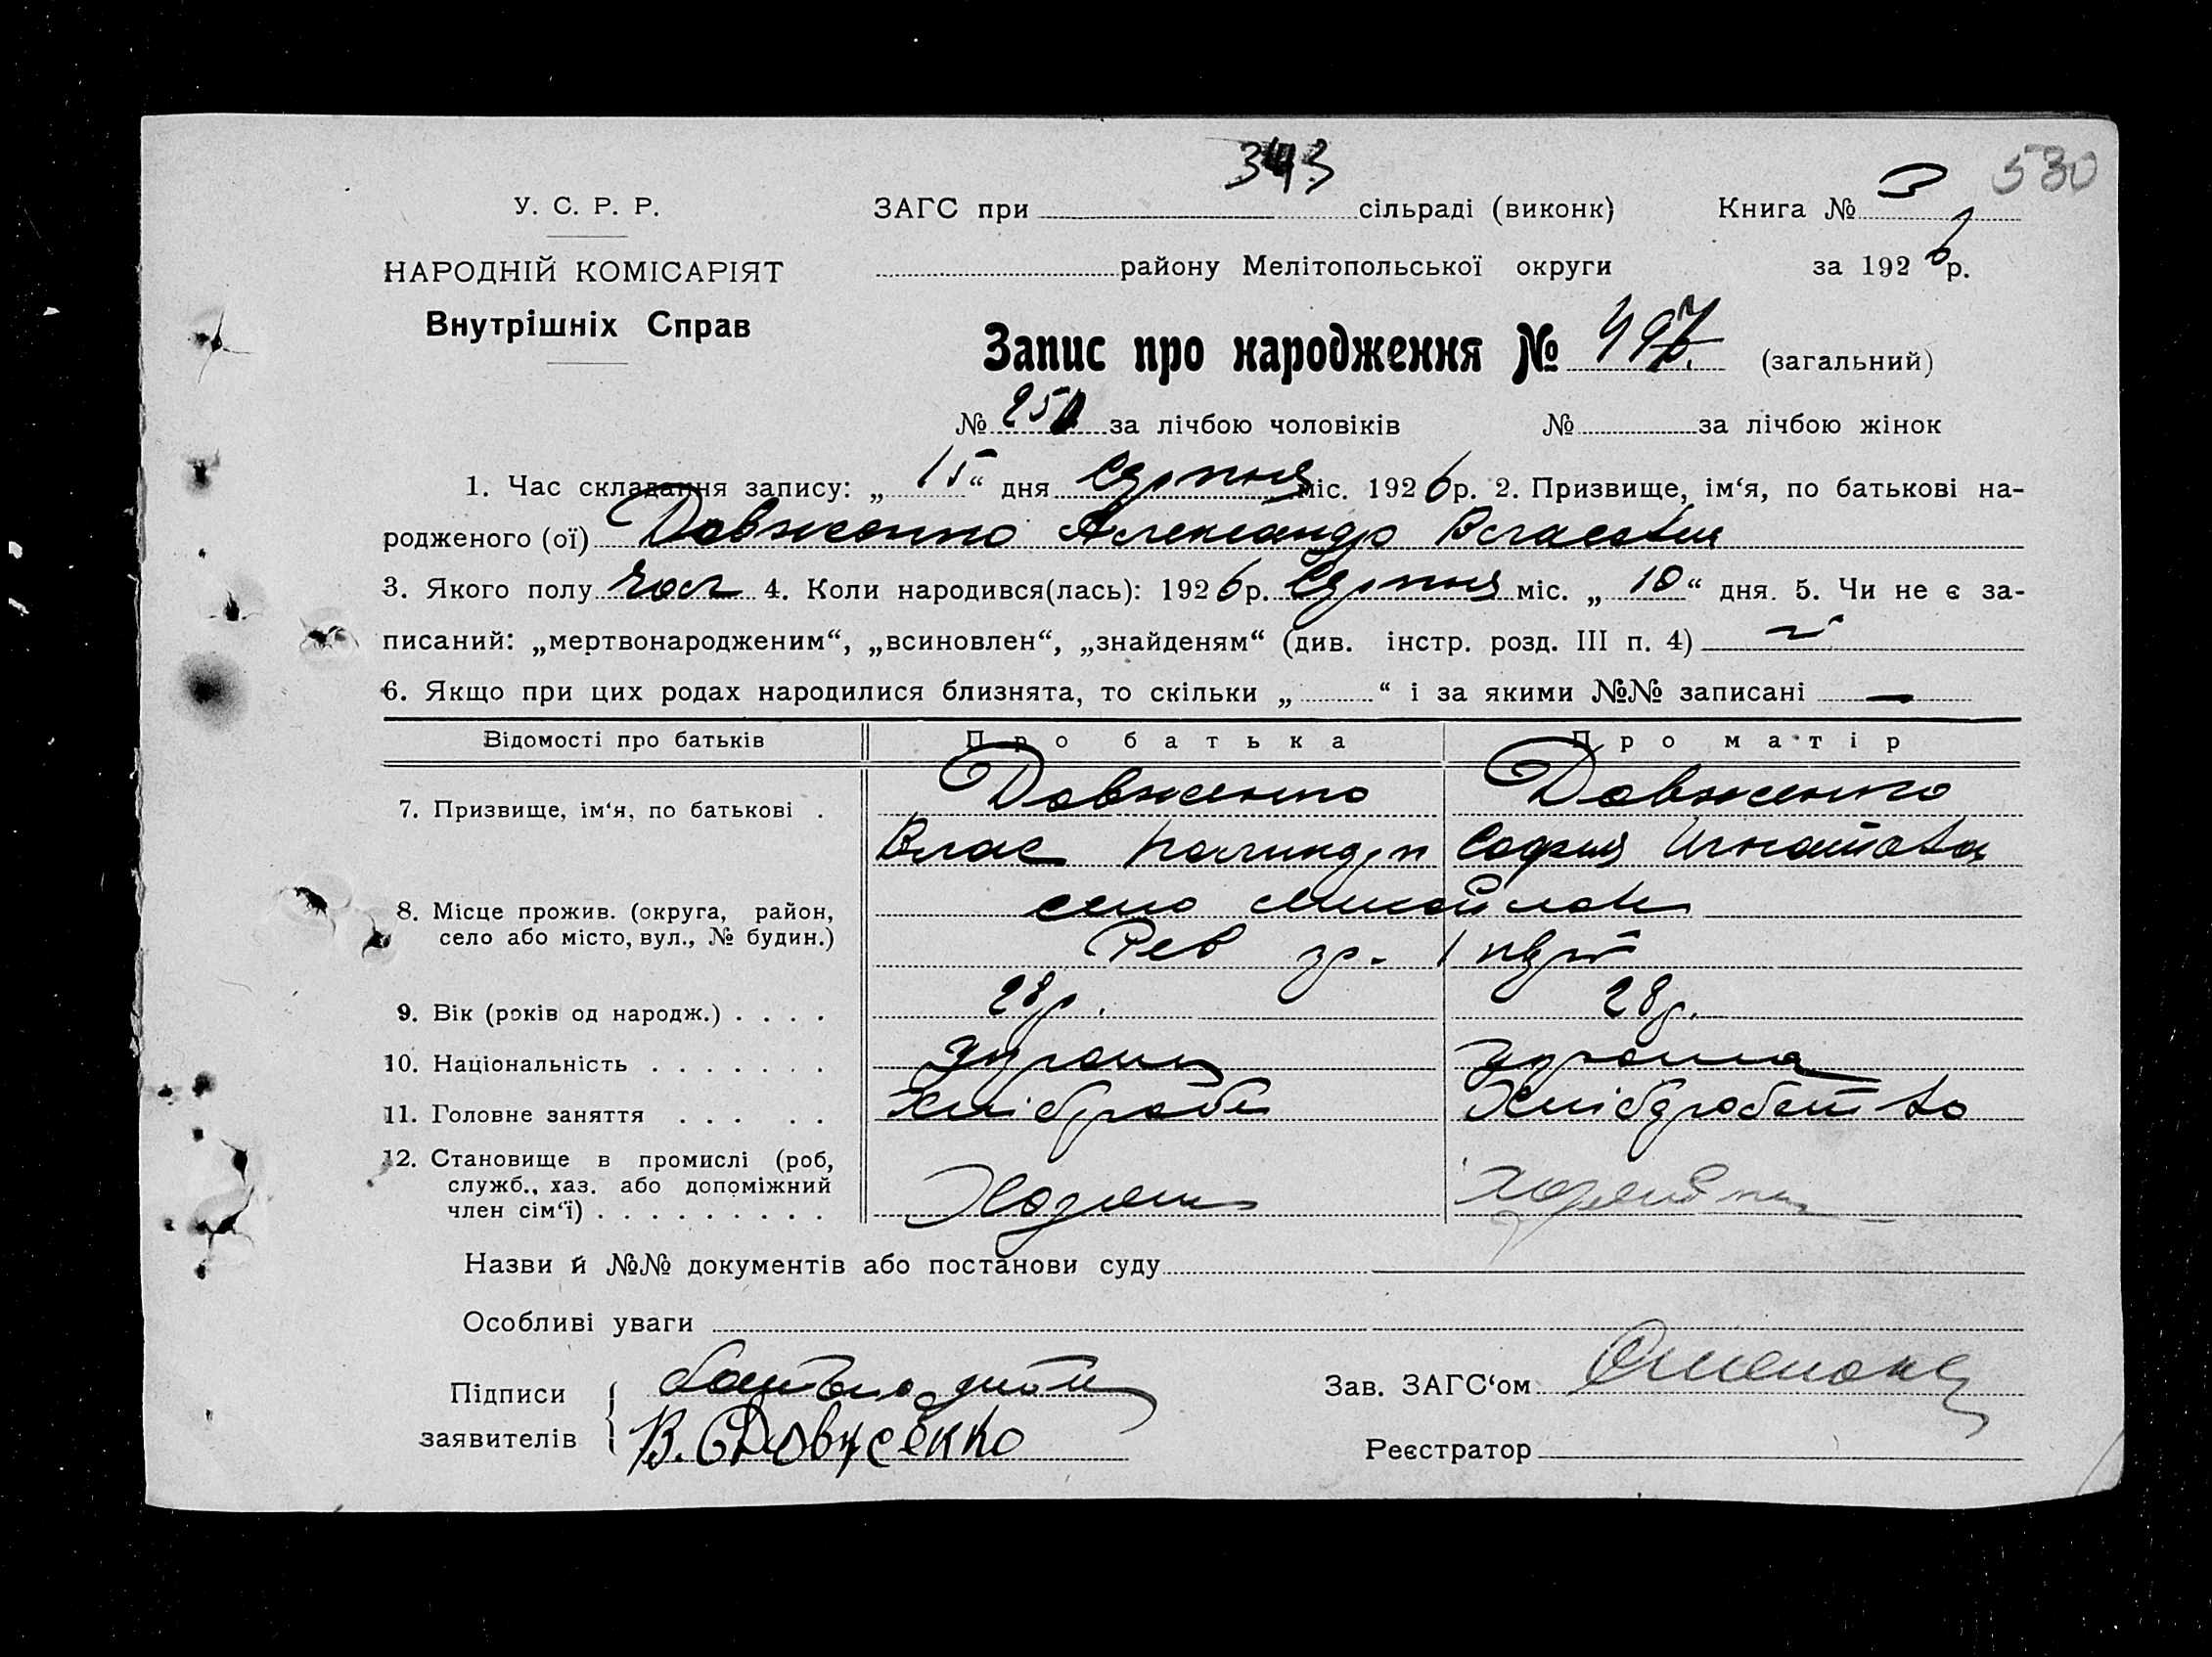 343
530
У. С. Р. Р.
ЗАГС при сільраді (виконк) Книга № 3
НАРОДНІЙ КОМІСАРІЯТ
району Мелітопольської округи за 1926р.
Внутрішніх Справ
Запис про народження № 497. (загальний)
№ 251 за лічбою чоловіків № за лічбою жінок
1. Час складання запису: „15“ дня Серпня міс. 1926р. 2. Призвище, ім‘я, по батькові на-
родженого (ої) Довженко Александр Власович
3. Якого полу чол 4. Коли народився(лась): 1926р. Серпня міс. „10“ дня. 5. Чи не є за-
писаний: „мертвонародженим“, „всиновлен“, „знайденям“ (див. інстр. розд. III п. 4)
6. Якщо при цих родах народилися близнята, то скільки „ “ і за якими №№ записані —
Відомості про батьків Про батька Про матір
7. Призвище, ім‘я, по батькові . Довженко Довженко
Влас София Игнатовна
8. Місце прожив. (округа, район, село
село або місто, вул., № будин.) Рев
9. Вік (років од народж.) . . . . 28р. 28р.
10. Національність . . . . . . .
11. Головне заняття . . . . .
12. Становище в промислі (роб,
служб., хаз. або допоміжний
член сім‘ї) . . . . . . . . .
Назви й №№ документів або постанови суду
Особливі уваги
Підписи
Зав. ЗАГС‘ом
заявителів В. Довженко
Реєстратор